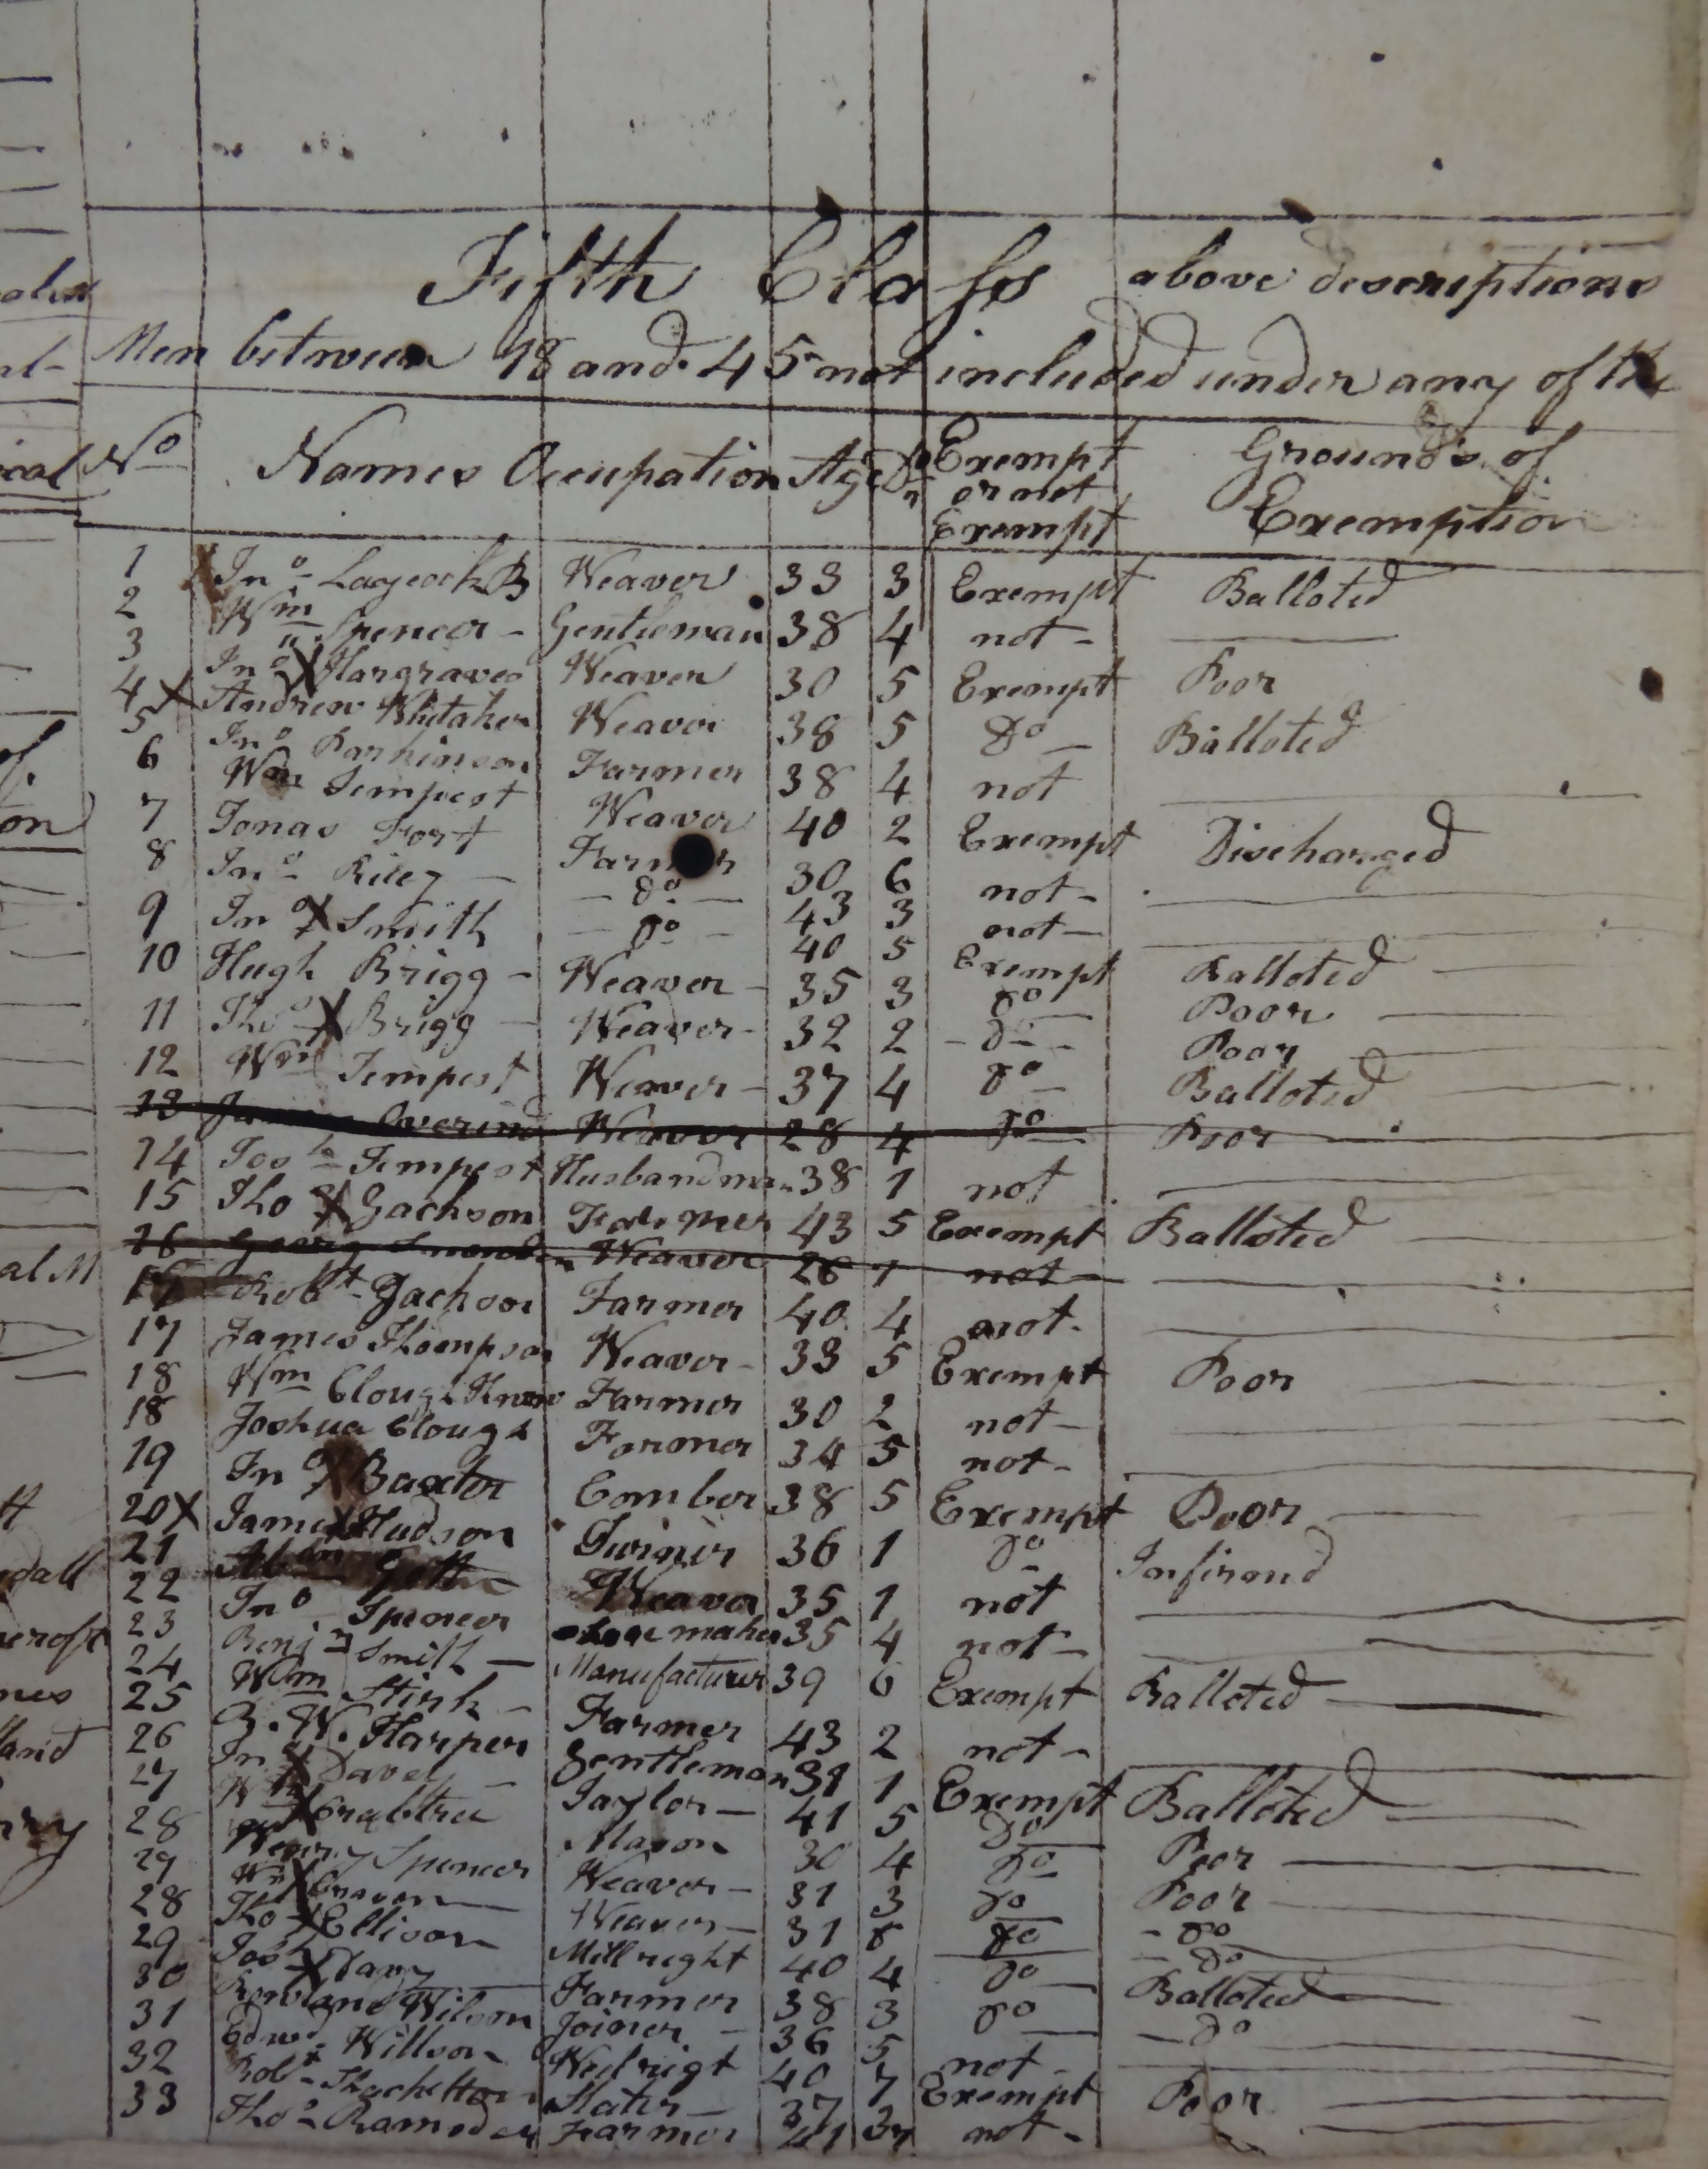 Fifth Class above descriptions
Men between 18 and 45 not included under any of the
No Names Occupation Age Exempt or not Exempt Grounds of Exemption
1 Jno Laycock B Weaver 33 3 Exempt Balloted
2 Wm Spencer - Gentleman 38 4 not -
3 Jno X Hargraves Weaver 30 5 Exempt Poor
4 X Andrew Whitaker Weavor 38 5 Do Balloted
5 Jno Parkinson Farmer 38 4 not
6 Wm Tempest Weaver 40 2 Exempt Discharged
7 Jonas Fort Farmer 30 6 not -
8 Jno Riley - do - 43 3 not -
9 Jno X Smith - do - 40 5 Exempt Balloted
10 Hugh Brigg - Weaver - 35 3 do Poor
11 Tho X Brigg - Weaver - 32 2 - do - Poor
12 Wm Tempest Weaver - 37 4 do Balloted
13 Overind Weaver 28 4 do Poor
14 Josh Tempest Husbandman 38 1 not
15 Tho X Jackson Farmer 43 5 Exempt Balloted
16 Weaver 26 1 not -
Robt Jackson Farmer 40 4 not -
17 James Thompson Weaver - 33 5 Exempt Poor
18 Wm Clough Farmer 30 2 not -
18 Joshua Clough Farmer 34 5 not -
19 Jno X Baxter Comber 38 5 Exempt Poor
20 X James X Hudson Twiner 36 1 do Infirmd
21 Weaver 35 1 not
22 Jno Spencer maker 35 4 not -
23 Benjn Smith - Manufacturer 39 6 Exempt Balloted
24 Wm Stirk - Farmer 43 2 not -
25 W. Harper Gentleman 39 1 Exempt Balloted
26 Jno X Davel - Taylor - 41 5 Do Poor
27 Wm X Crabtree Mason 30 4 Do Poor
28 Henry Spencer Weaver - 31 3 do - do
29 Wm X Craven Weaver - 31 8 do - do
28 Tho X Ellison Millright 40 4 do Balloted
29 Josh X Davy Farmer 38 3 do - do
30 Rowland Wilson Joiner - 36 5 not -
31 Edwd Willson Weelrigt 40 7 Exempt Poor
32 Robt Shackleton Slater - 37 3 not -
33 Thos Ramsden Farmer 41